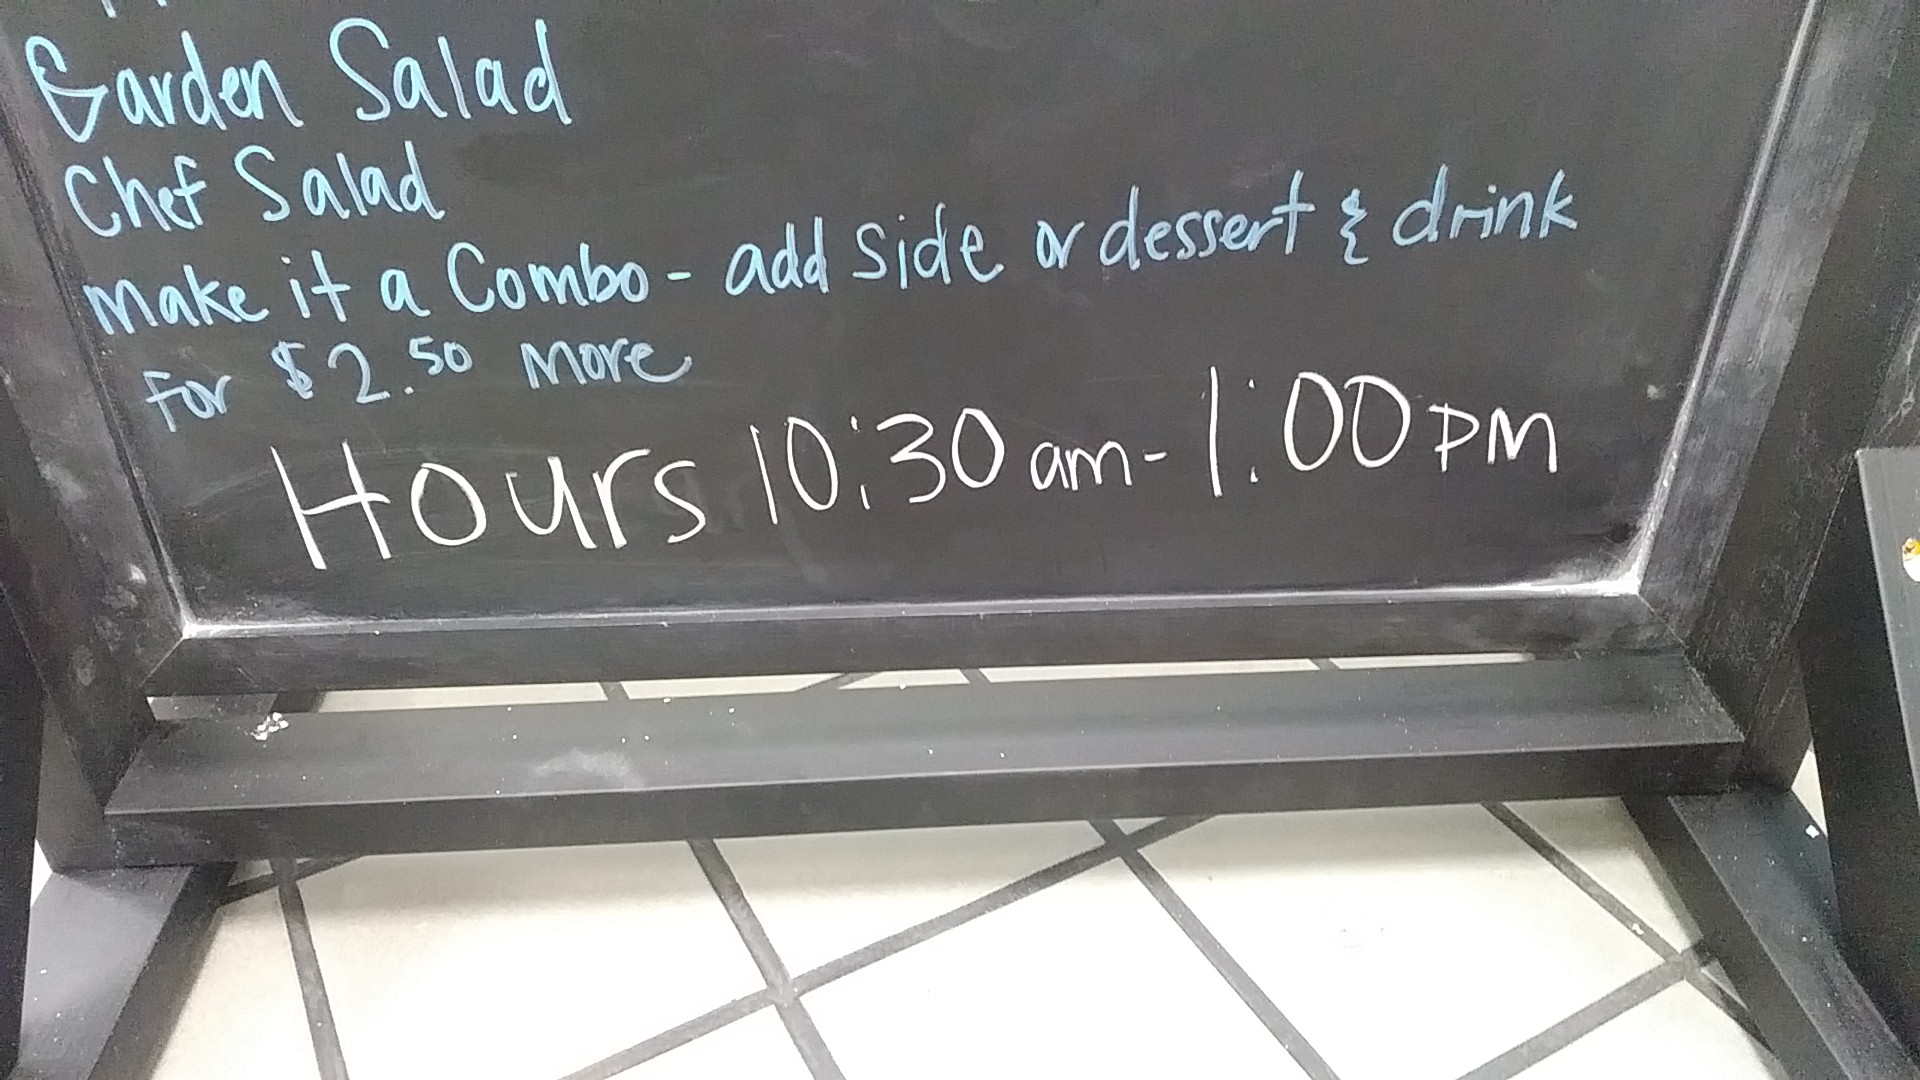 Garden Salad
Chef Salad
Make it a Combo - add side or dessert & drink
For $2.50 More
Hours 10:30 am - 1:00 PM